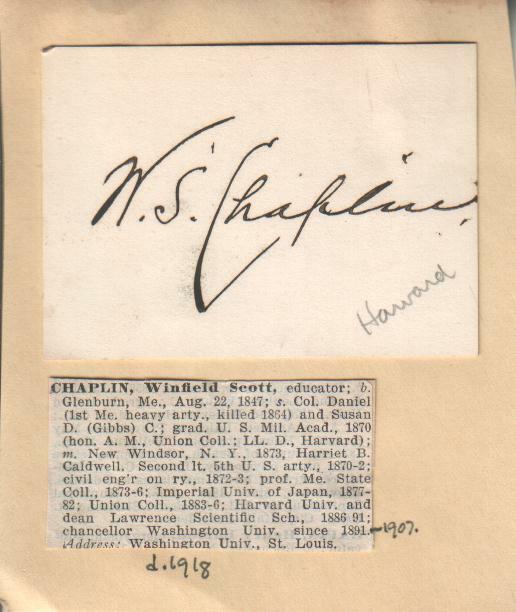 W. S. Chaplin.
Harvard
CHAPLIN, Winfield Scott, educator; b.
Glenburn, Me., Aug. 22, 1847; s. Col. Daniel
(1st Me. heavy arty., killed 1864) and Susan
D. (Gibbs) C.; grad. U. S. Mil. Acad., 1870
(hon. A. M., Union Coll.; LL. D., Harvard);
m. New Windsor, N. Y., 1873, Harriet B.
Caldwell. Second lt. 5th U. S. arty., 1870-2;
civil eng'r on ry., 1872-3; prof. Me. State
Coll., 1873-6; Imperial Univ. of Japan, 1877-
82; Union Coll., 1883-6; Harvard Univ. and
dean Lawrence Scientific Sch., 1886 91;
chancellor Washington Univ. since 1891.-1907.
Address: Washington Univ., St. Louis.
d. 1918